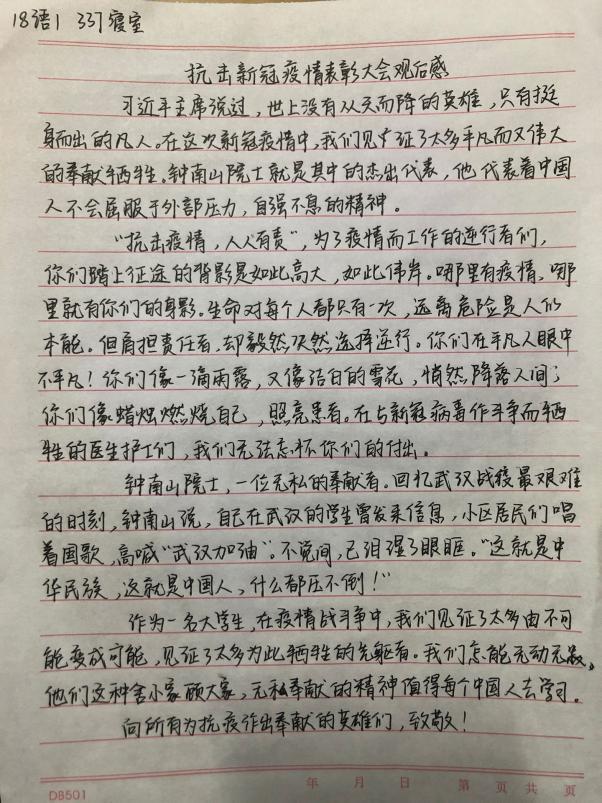 18语1 337寝室
抗击新冠疫情表彰大会观后感
习近平主席说过，世上没有从天而降的英雄，只有挺
身而出的凡人。在这次新冠疫情中，我们见证了太多平凡而又伟大
的奉献牺牲。钟南山院士就是其中的杰出代表，他代表着中国
人不会屈服于外部压力，自强不息的精神。
“抗击疫情，人人有责”，为了疫情而工作的逆行者们，
你们踏上征途的背影是如此高大，如此伟岸。哪里有疫情，哪
里就有你们的身影。生命对每个人都只有一次，远离危险是人们
本能。但肩担责任者，却毅然决然选择逆行。你们在平凡人眼中
不平凡！你们像一滴雨露，又像洁白的雪花，悄然降落人间；
你们像蜡烛燃烧自己，照亮患者。在与新冠病毒作斗争而牺
牲的医生护工们，我们无法忘怀你们的付出。
钟南山院士，一位无私的奉献者。回忆武汉战疫最艰难
的时刻，钟南山说，自己在武汉的学生曾发来信息，小区居民们唱
着国歌，高喊“武汉加油”。不说间，已泪湿了眼眶。“这就是中
华民族，这就是中国人，什么都压不倒！”
作为一名大学生，在疫情战斗争中，我们见证了太多由不可
能变成可能，见证了太多为此牺牲的先躯者。我们怎能无动无衷，
他们这种舍小家顾大家，无私奉献的精神值得每个中国人去学习。
向所有为抗疫作出奉献的英雄们，致敬！
DB501 年 月 日 第 页 共 页